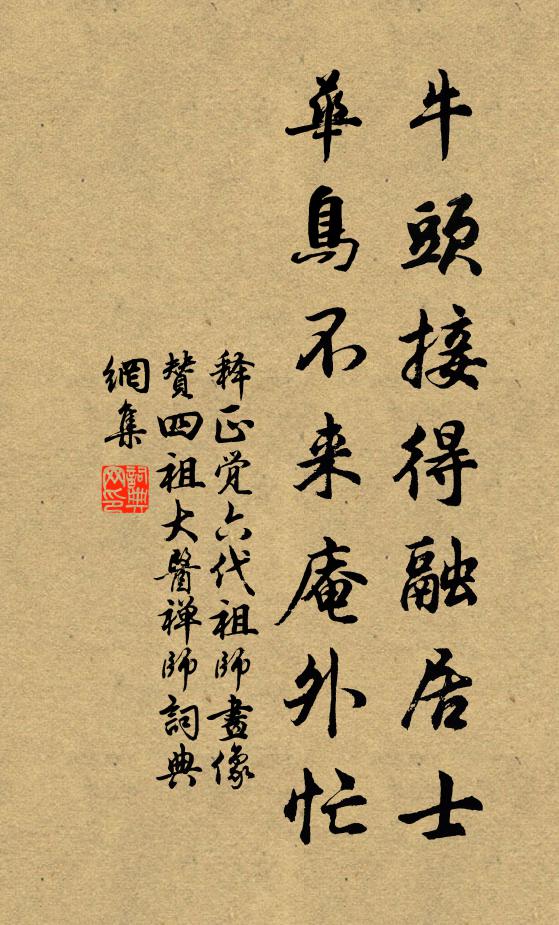 牛頭接得融居士
華鳥不来庵外忙
释正觉六代祖师畫像
赞四祖大醫禅师詞典
網集
詞典網印